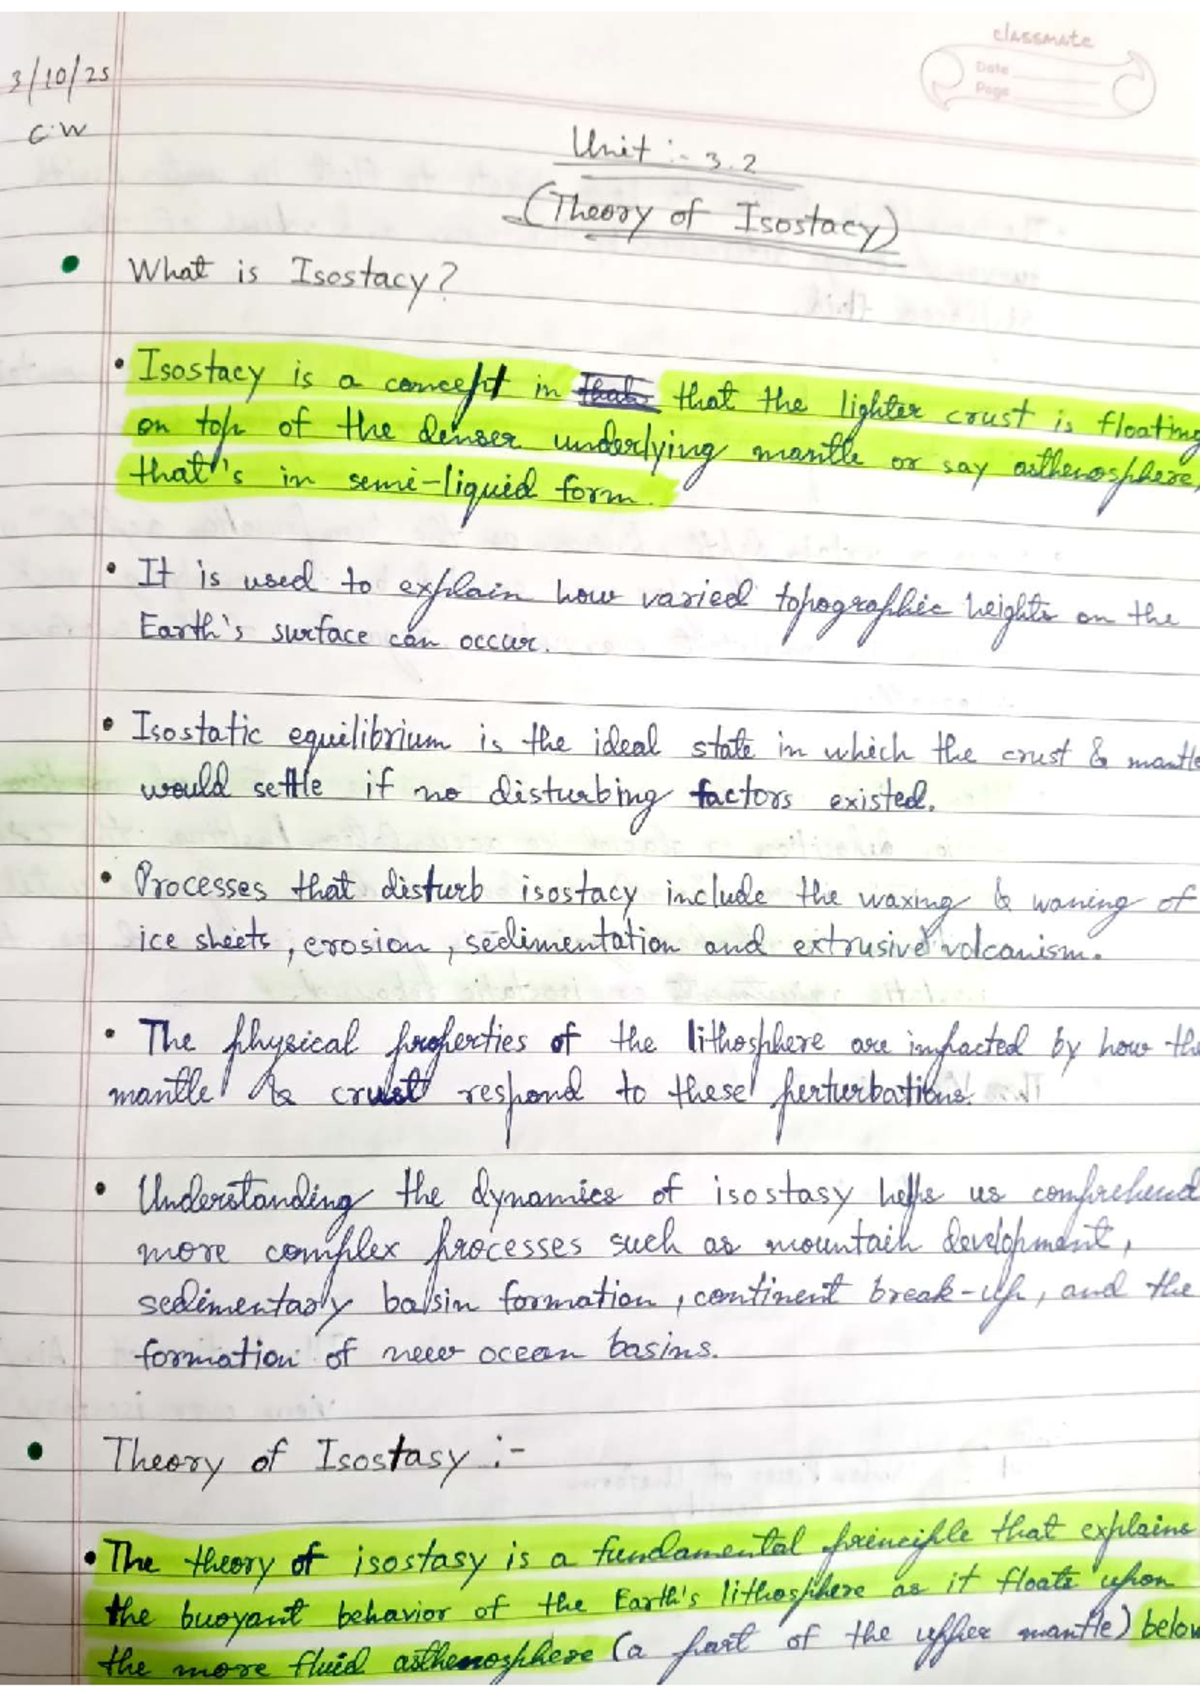 classmate
Date
Page
3/10/25
C.W
Unit :- 3.2
(Theory of Isostacy)
• What is Isostacy?
• Isostacy is a concept in that the lighter crust is floating
on top of the denser underlying mantle or say asthenosphere,
that's in semi-liquid form.
• It is used to explain how varied topographic heights on the
Earth's surface can occur.
• Isostatic equilibrium is the ideal state in which the crust & mantle
would settle if no disturbing factors existed.
• Processes that disturb isostacy include the waxing & waning of
ice sheets, erosion, sedimentation and extrusive volcanism.
• The physical properties of the lithosphere are impacted by how the
mantle & crust respond to these perturbations.
• Understanding the dynamics of isostasy helps us comprehend
more complex processes such as mountain development,
sedimentary basin formation, continent break-up, and the
formation of new ocean basins.
• Theory of Isostasy :-
• The theory of isostasy is a fundamental principle that explains
the buoyant behavior of the Earth's lithosphere as it floats upon
the more fluid asthenosphere (a part of the upper mantle) below